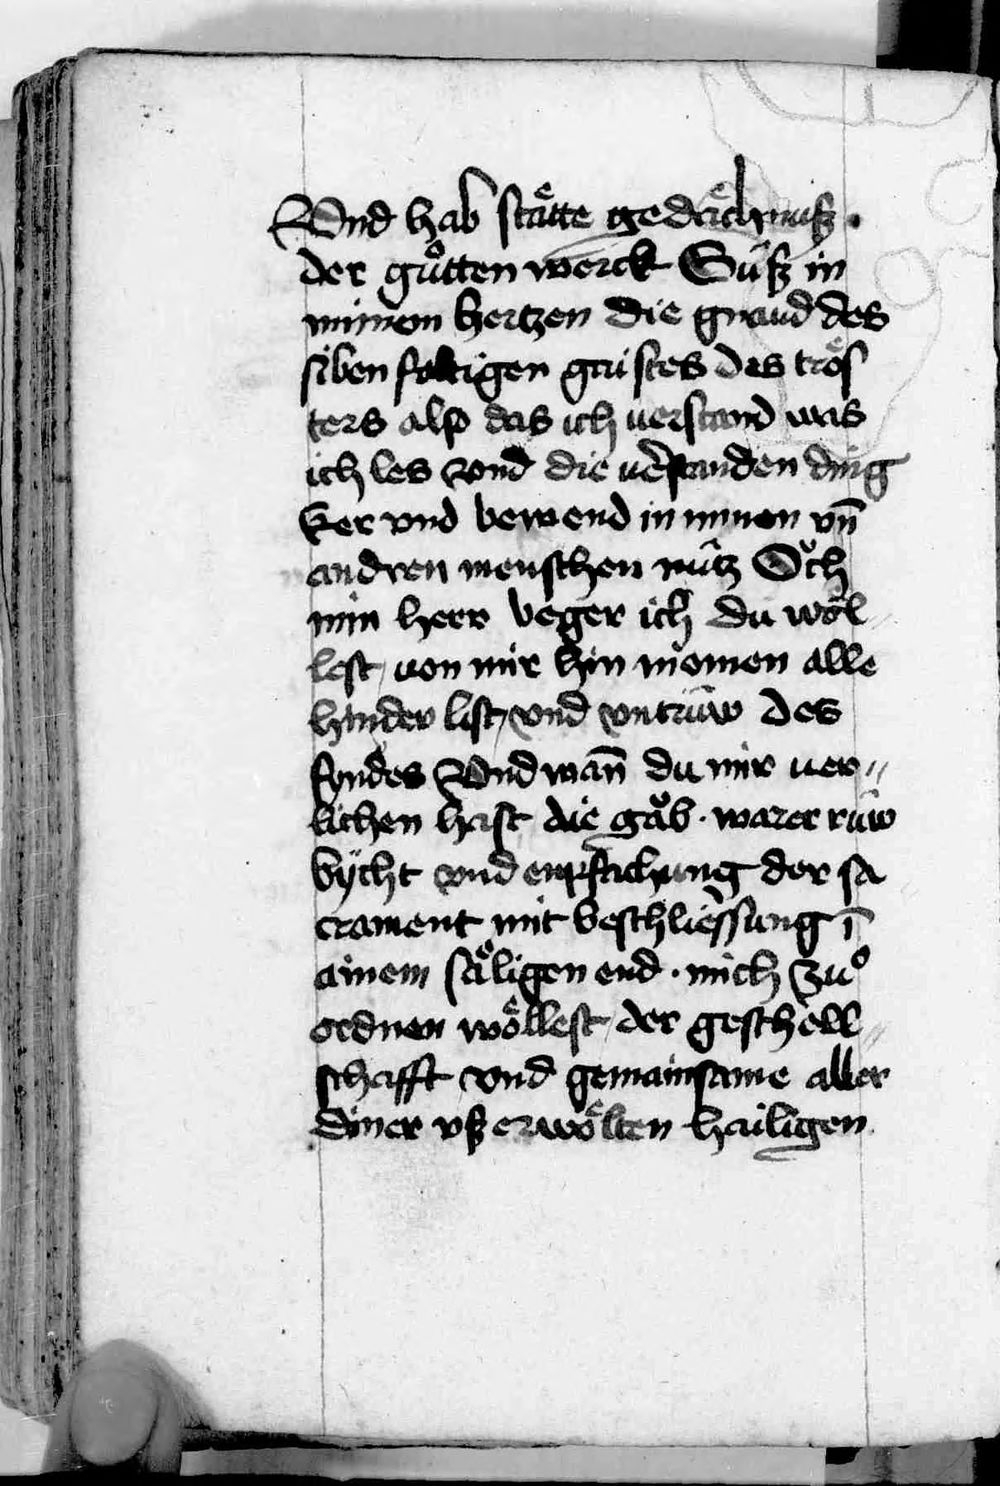 Vnd hab stäͤtte gedäͤchnusz ·
der guͦtten werck Gúsz in
minem hertzen die gnaud des
siben faltigen gaistes des trös
ters also das ich uerstand was
ich les vnd die uerstanden ding
ker vnd bewend in minen vn̄
andren menschen nútz Oͮch
min herr beger ich du wöl⸗
lest von mir hin niemen alle
hinder list vnd vntrúw des
fyndes Vnd wan̄ du mir uer⸗
lichen hast die gäͮb · warer rúw
bÿcht vnd enpfachung der sa
crament mit beschliessung ī
ainem säͤligen end · mich zuͦ
ordnen wöͤllest der geschell⸗
schafft vnd gemainsame aller
diner vsz erwöͤlten hailigen